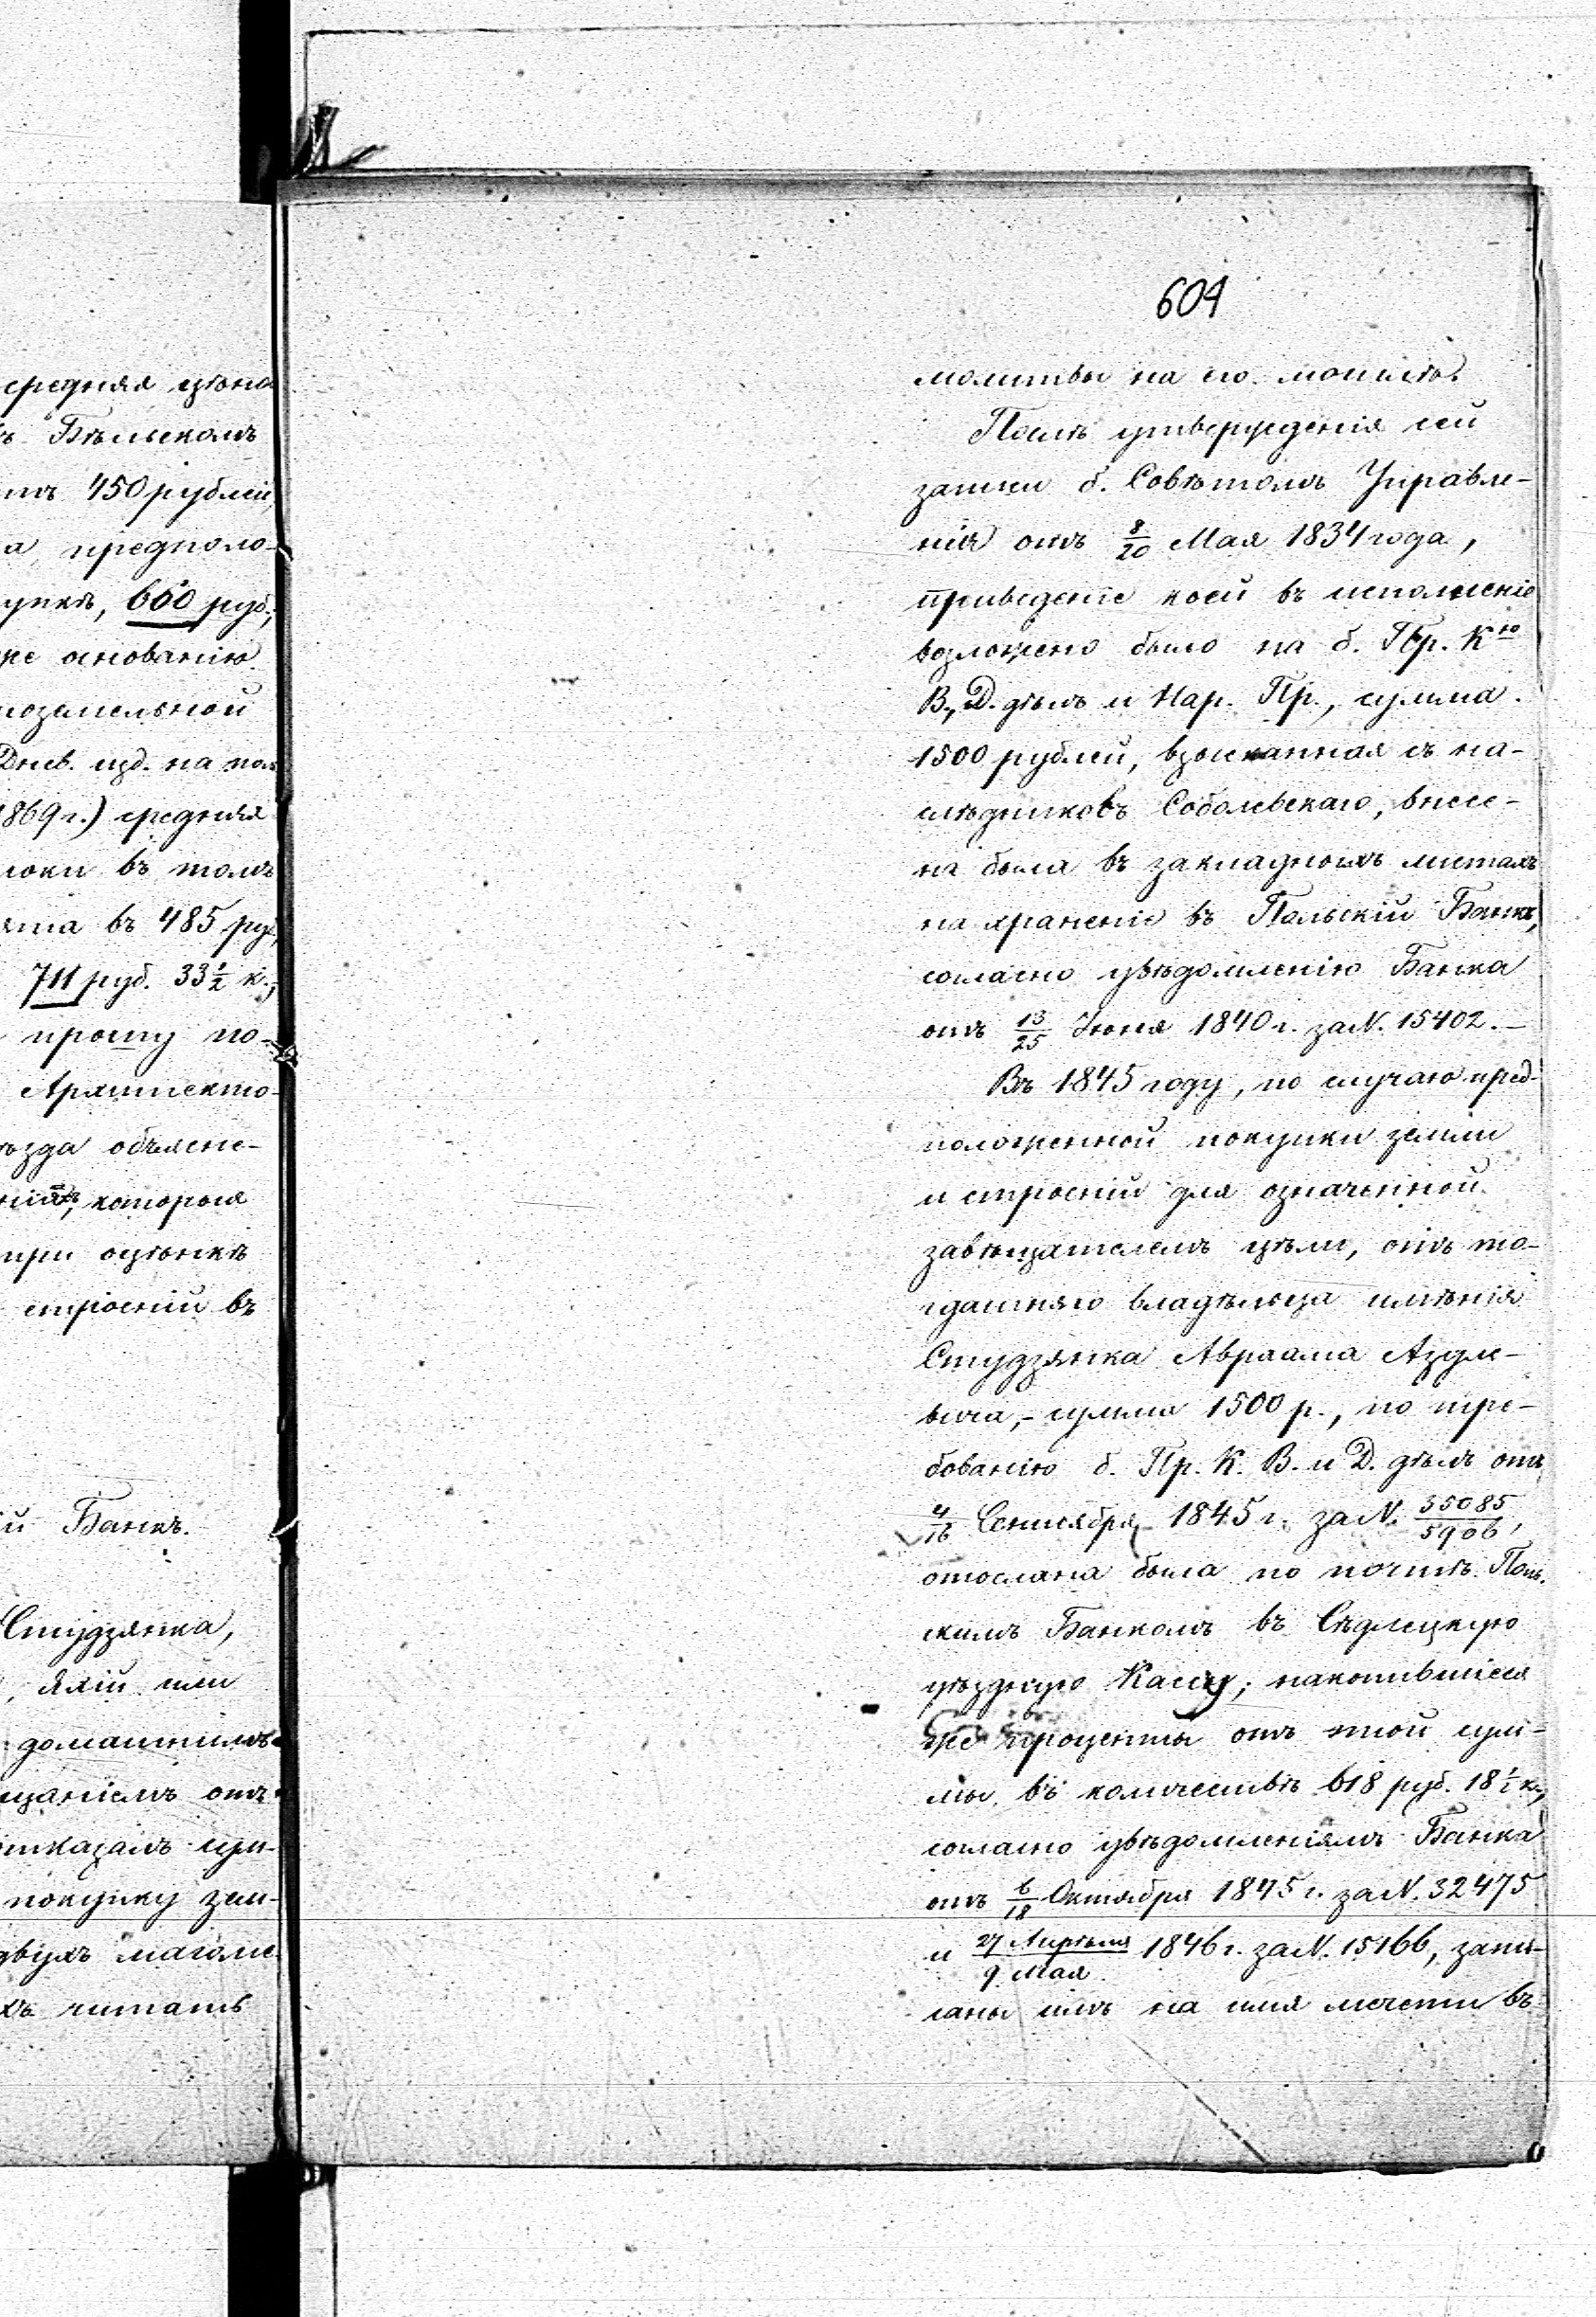 средняя цѣна
ъ Бѣльскомъ
тъ 450 рублей,
а предполо-
упкѣ, 660 руб.,
же основанію
поземельной
Днев. изд. на пол
1869 г.) средняя
локи въ томъ
ята въ 485 руб,
711 руб. 33½ к.,
прошу по-
Архитекто-
ѣзда объясне-
ніяхъ, которыя
при оцѣнкѣ
строеній въ
й Банкъ.
Студзянка,
, Яхій или
домашнимъ
щаніемъ отъ
отказалъ сум-
покупку зем-
двухъ магоме
хъ читать
604
молитвы на его могилѣ.
Послѣ утвержденія сей
записи б. Совѣтомъ Управле-
нія отъ 8/20 Мая 1834 года,
приведеніе коей въ исполненіе
возложено было на б. Пр. Кю
В., Д. дѣлъ и Нар. Пр., сумма
1500 рублей, взысканная съ на-
слѣдниковъ Соболевскаго, внесе-
на была въ закладныхъ листахъ
на храненіе въ Польскій Банкъ,
согласно увѣдомленію Банка
отъ 13/25 Іюня 1840 г. за N. 15402.-
Въ 1845 году, по случаю пред-
положенной покупки земли
и строеній для означенной
завѣщателемъ цѣли, отъ то-
гдашняго владѣльца имѣнія
Студзянка Авраама Азуле-
вича,- сумма 1500 р., по тре-
бованію б. Пр. К. В. и Д. дѣлъ отъ
4/16 Сентября 1845 г. за N. 35085/5906,
отослана была по почтѣ Поль-
скимъ Банкомъ въ Сѣдлецкую
уѣздную Кассу; накопившіеся
же проценты отъ этой сум-
мы въ количествѣ 618 руб. 18½ к.,
согласно увѣдомленіямъ Банка
отъ 6/18 Октября 1845 г. за N. 32475
и 27 Апрѣля/9 Мая 1846 г. за N. 15166, запи-
саны имъ на имя мечети въ